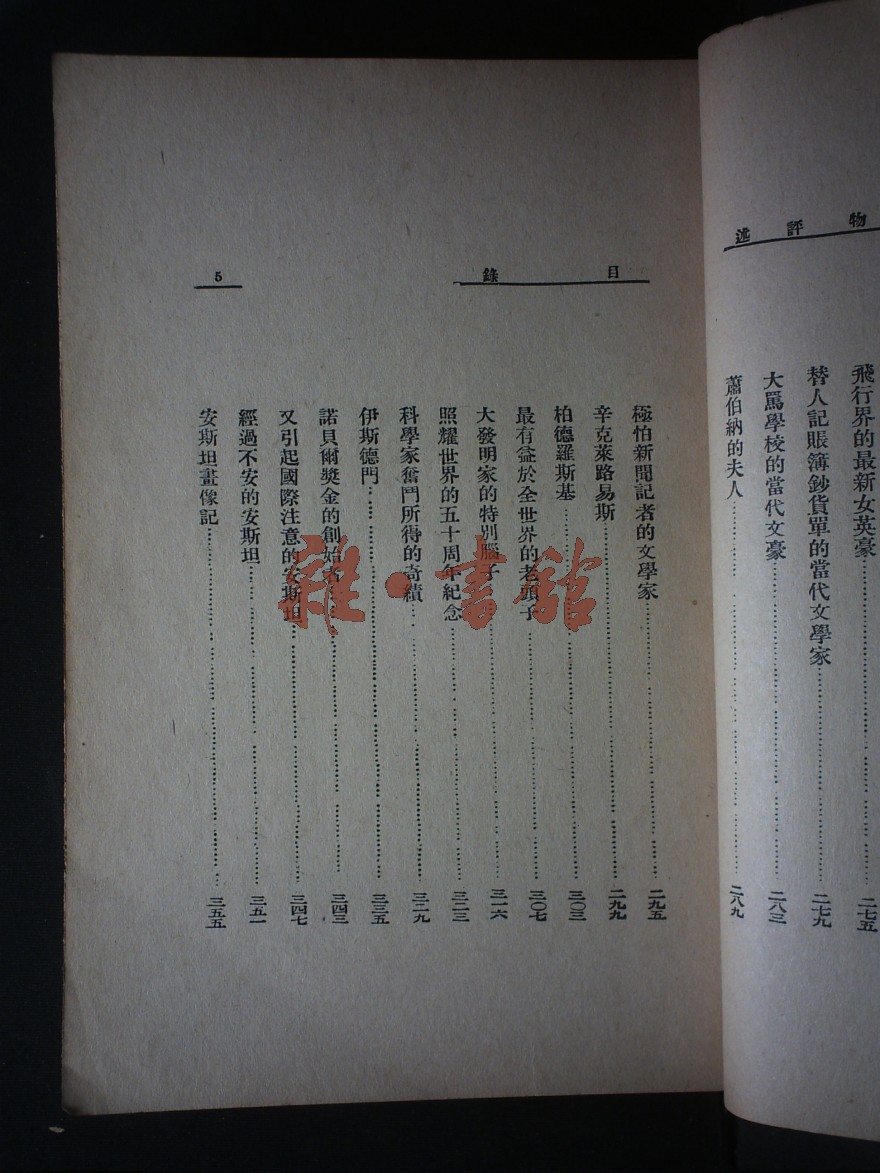 物評述
飛行界的最新女英豪……二七五
替人記賬簿鈔貨單的當代文學家……二七九
大罵學校的當代文豪……二八三
蕭伯納的夫人……二八九
目錄
5
極怕新聞記者的文學家……二九五
辛克萊路易斯……二九九
柏德羅斯基……三〇三
最有益於全世界的老頭子……三〇七
大發明家的特別腦子……三一六
照耀世界的五十周年紀念……三二三
科學家奮鬥所得的奇績……三二九
伊斯德門……三三五
諾貝爾獎金的創始者……三四三
又引起國際注意的安斯坦……三四七
經過不安的安斯坦……三五一
安斯坦畫像記……三五五
雜·書館